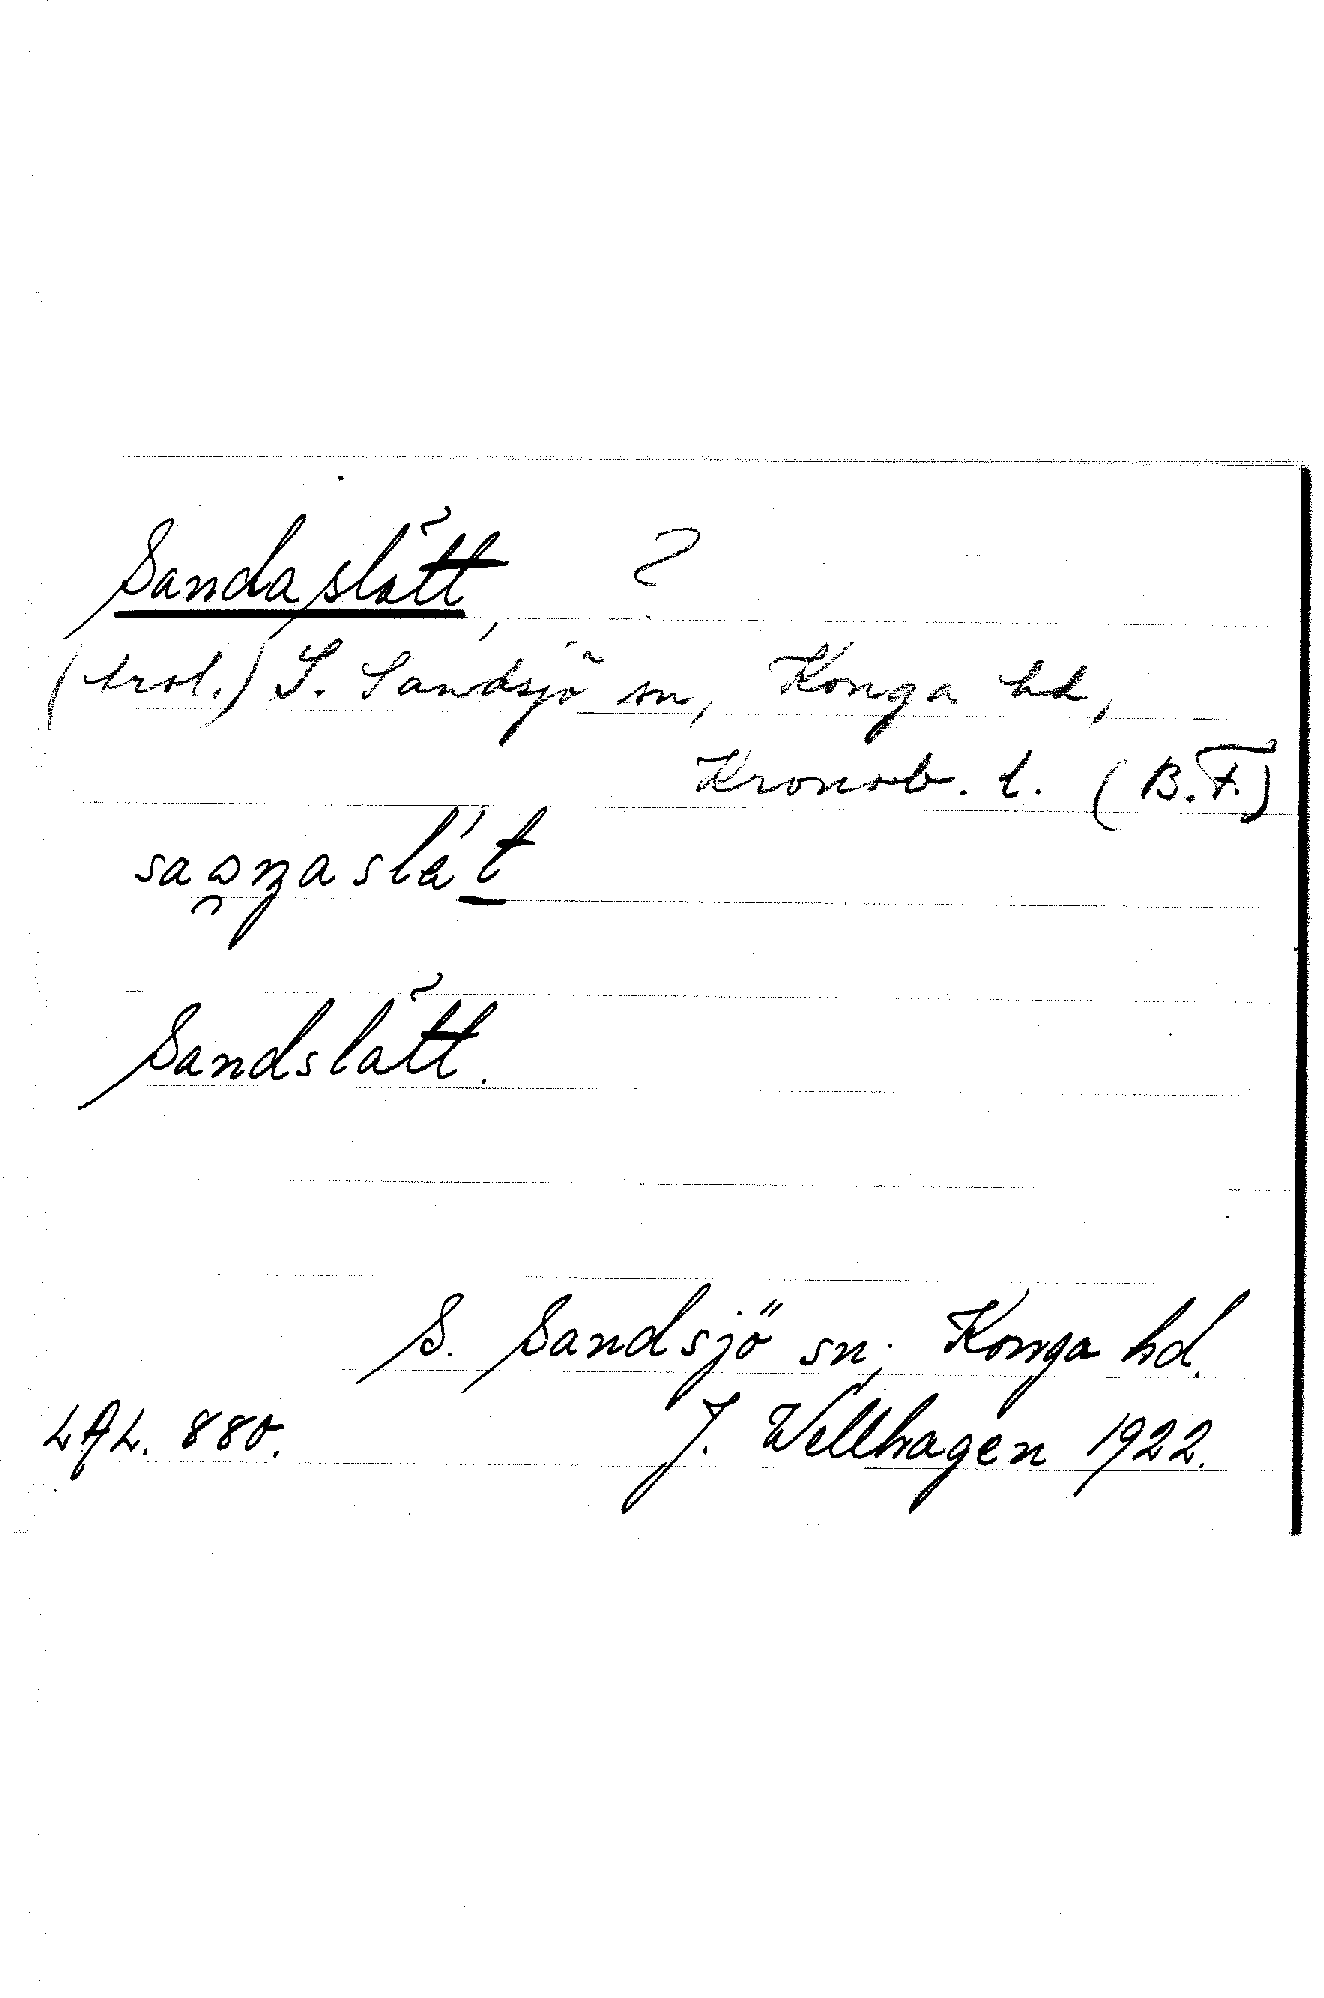 Sandaslätt, ?
(trol.) S. Sandsjö sn, Konga hd,
Kronob. l. (B.F.)
Sandslätt.
S. Sandsjö sn, Konga hd.
LAL. 880. J. Wellhagen 1922.